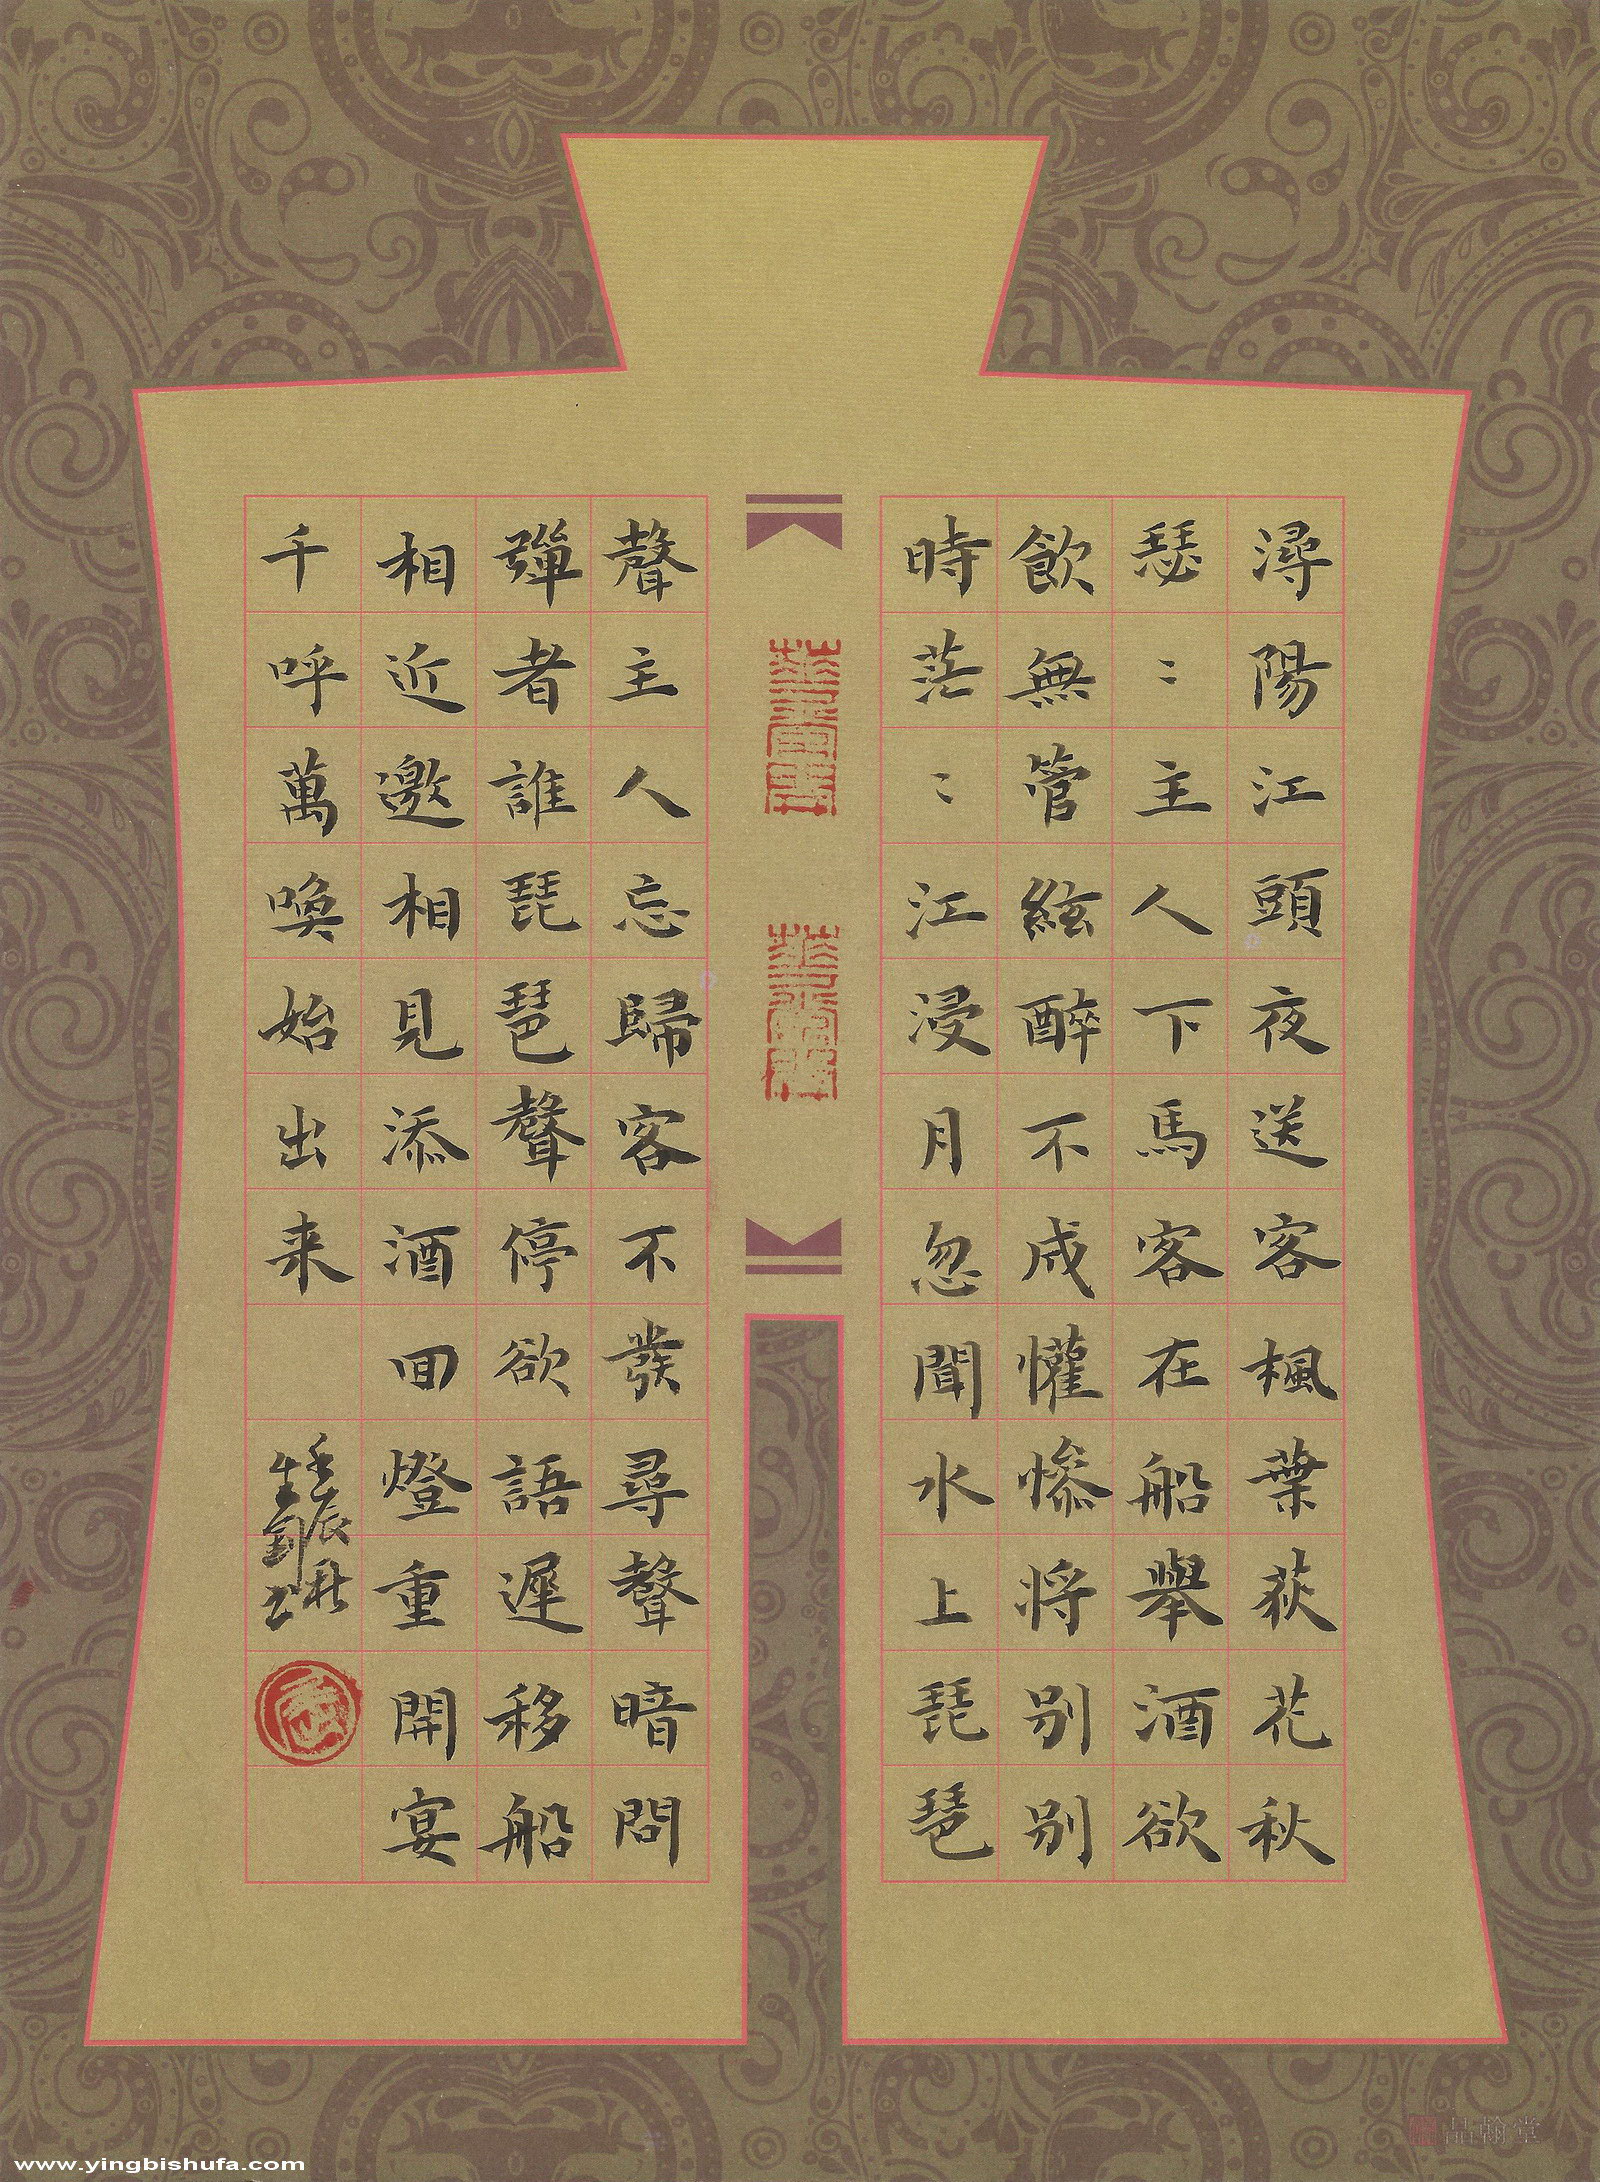 潯陽江頭夜送客楓葉荻花秋
瑟〻主人下馬客在船舉酒欲
飲無管絃醉不成懽慘將別別
時茫〻江浸月忽聞水上琵琶
聲主人忘歸客不發尋聲暗問
彈者誰琵琶聲停欲語遲移船
相近邀相見添酒回燈重開宴
千呼萬喚始出来
壬辰秋
書
品翰堂
www.yingbishufa.com